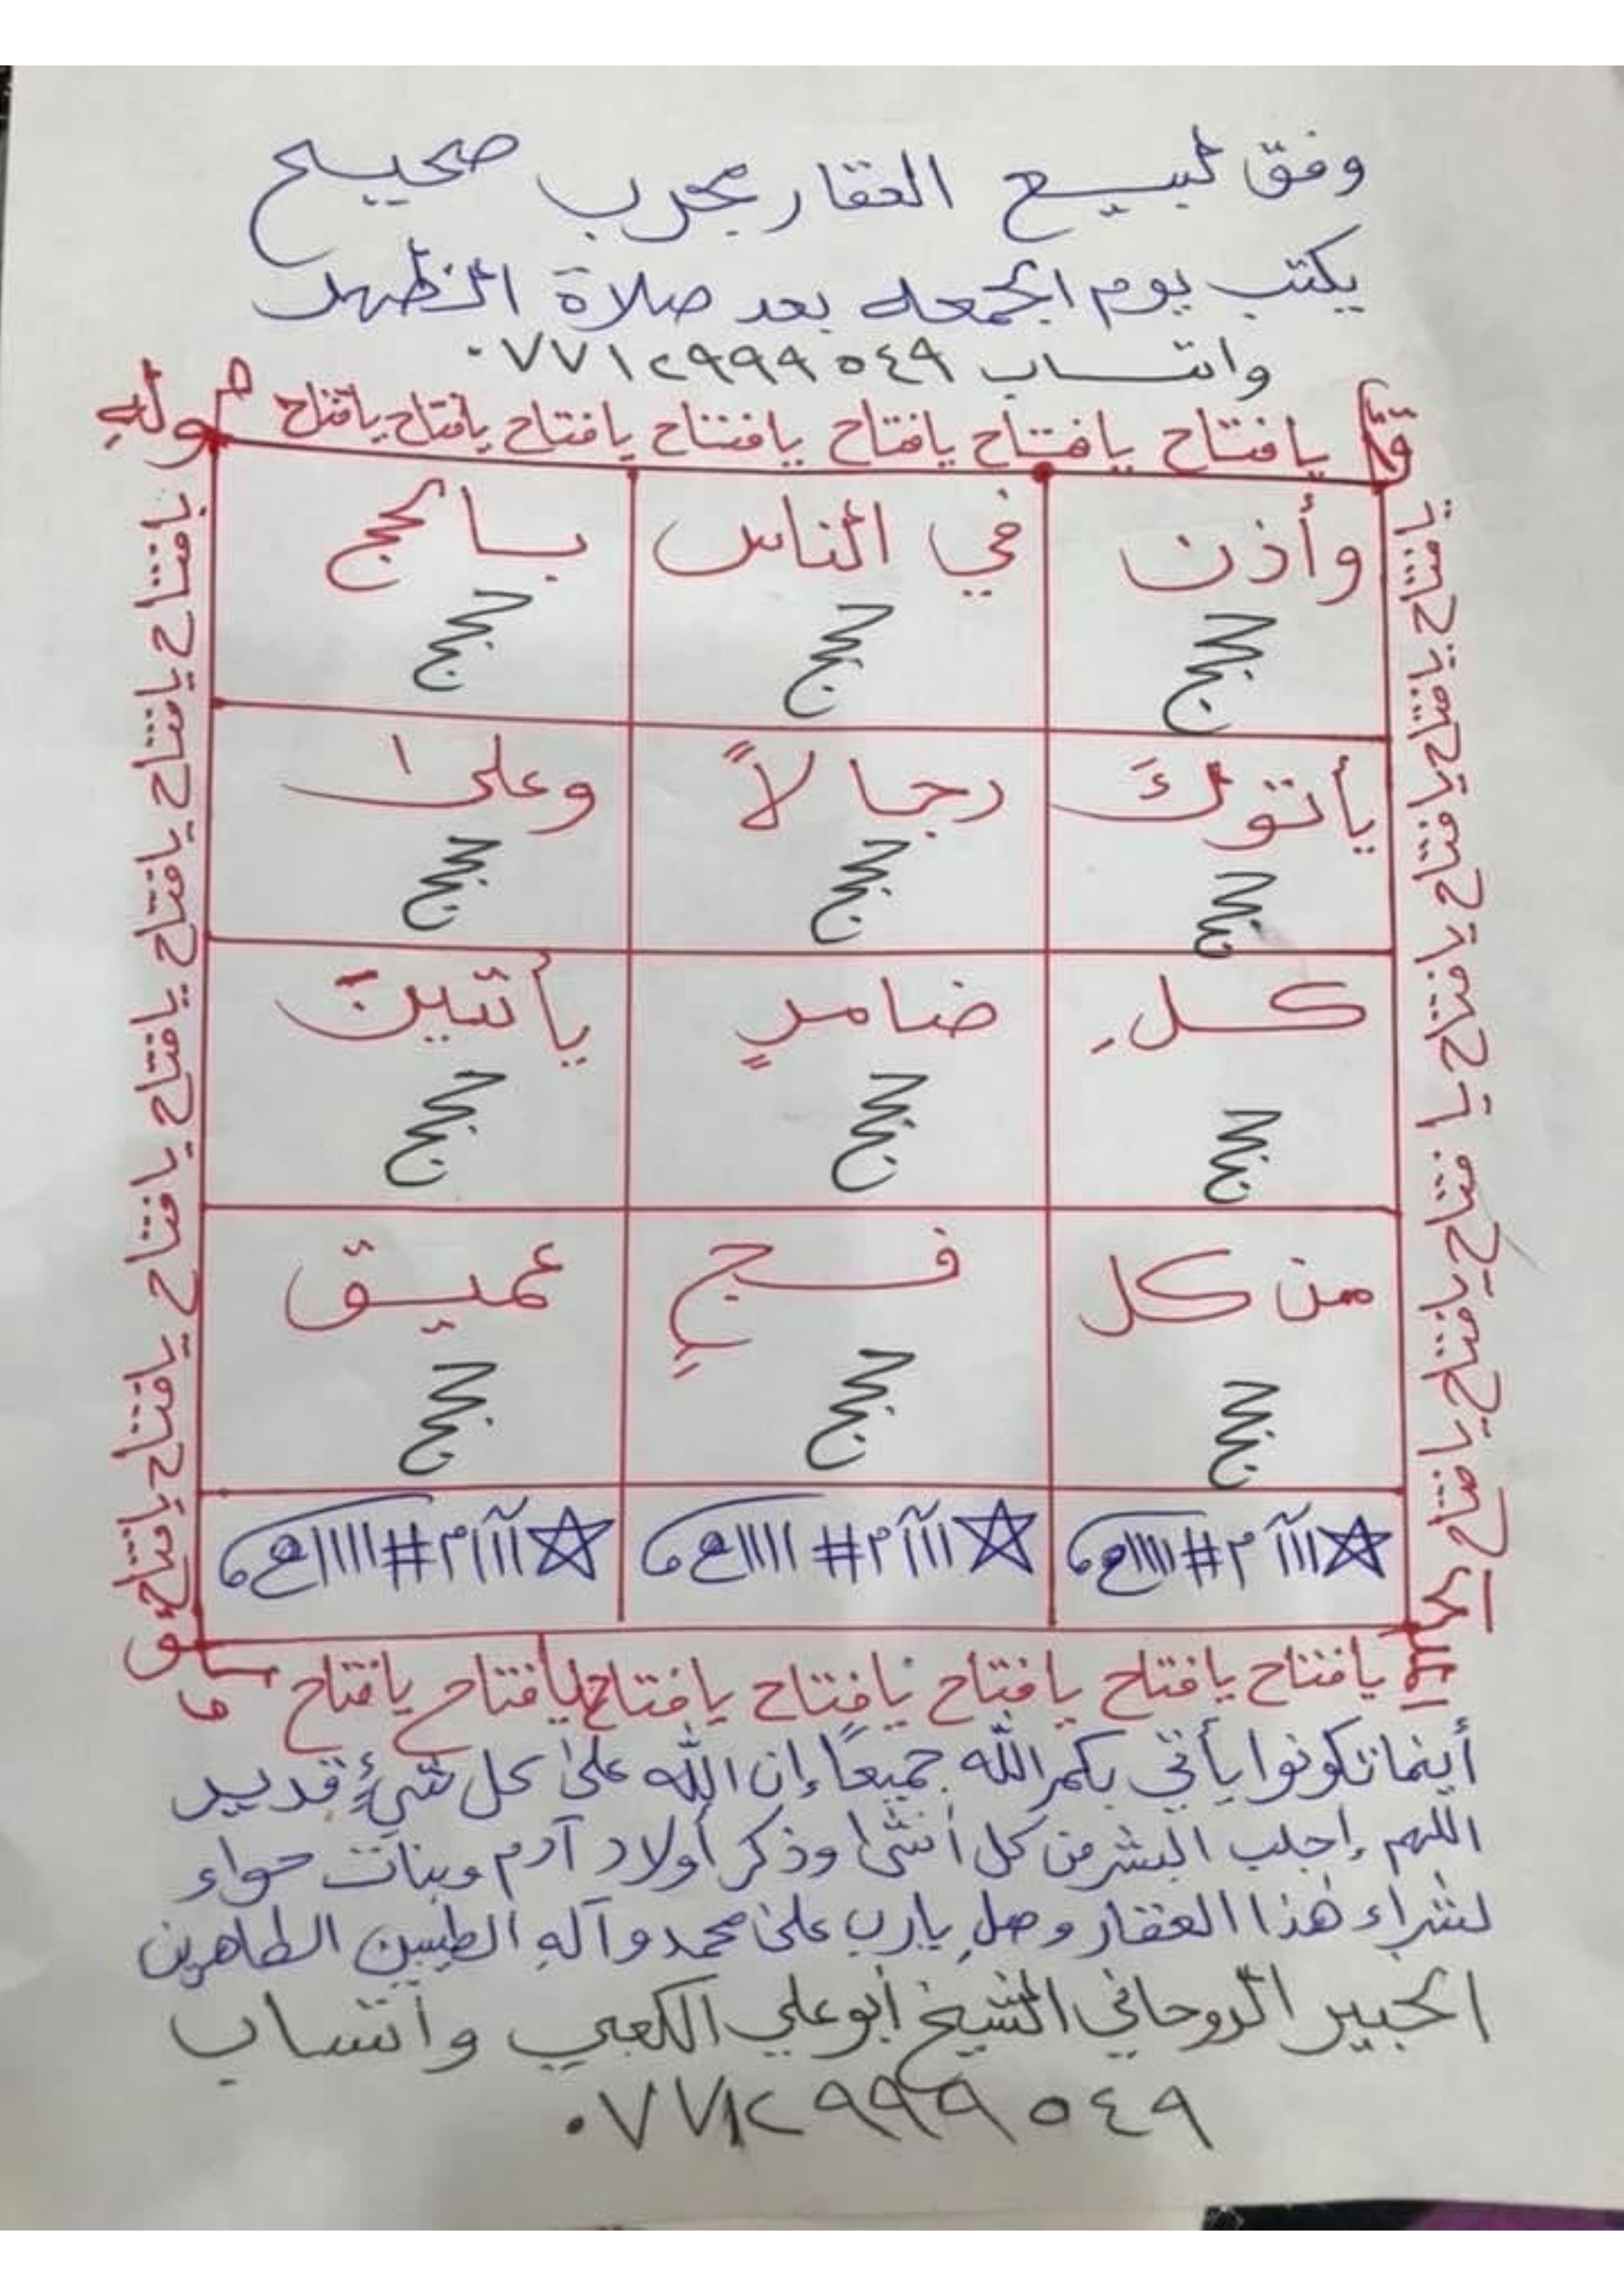 وفق لبيع العقار مجرب صحيح
يكتب يوم الجمعه بعد صلاة الظهر
واتساب ٠٧٧١٢٩٩٩٥٤٩
يا فتاح يا فتاح يا فتاح يا فتاح يا فتاح يا فتاح يا فتاح
وأذن في الناس بالحج
يأتوكَ رجالاً وعلىٰ
كلِ ضامرٍ يأتين
من كل فجٍ عميق
☆ااآم#ااااع ☆ااآم#ااااع ☆ااآم#ااااع
يا فتاح يا فتاح يا فتاح يا فتاح يا فتاح يا فتاح يا فتاح
أينما تكونوا يأتي بكم الله جميعًا إن الله علىٰ كل شيءٍ قدير
اللهم إجلب البشر من كل أنثىٰ وذكر أولاد آدم وبنات حواء
لشراء هٰذا العقار وصلِ يارب علىٰ محمد وآلهِ الطيبين الطاهرين
الخبير الروحاني الشيخ أبو علي الكعبي واتساب
٠٧٧١٢٩٩٩٥٤٩